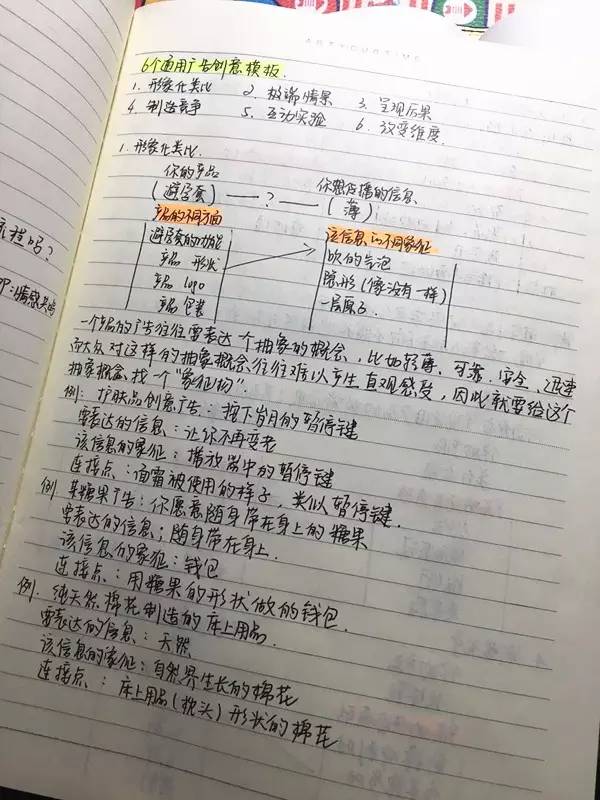 ARTYOURTIME
6个通用广告创意模板.
1. 形象化类比 2. 极端情果 3. 呈现后果
4. 制造竞争 5. 互动实验 6. 改变维度.
1. 形象化类比.
你的产品 你想传播的信息
(避孕套) —— ? —— (薄)
产品的不同方面 该信息的不同象征
避孕套的功能 吹的气泡
产品 形状 隐形(像没有一样)
产品 logo 一层原子.
产品 包装
一个产品的广告往往要表达一个抽象的概念,比如轻薄、可靠、安全、迅速
而大众对这样的抽象概念往往难以产生直观感受,因此就要给这个
抽象概念找一个"象征物".
例: 护肤品创意广告: 按下岁月的暂停键
要表达的信息: 让你不再变老
该信息的象征: 播放器中的暂停键
连接点: 面霜被使用的样子, 类似暂停键.
例. 某糖果广告: 你愿意随身带在身上的糖果
要表达的信息; 随身带在身上.
该信息的象征: 钱包
连接点: 用糖果的形状做的钱包
例. 纯天然棉花制造的床上用品.
要表达的信息: 天然
该信息的象征: 自然界生长的棉花
连接点: 床上用品(枕头)形状的棉花